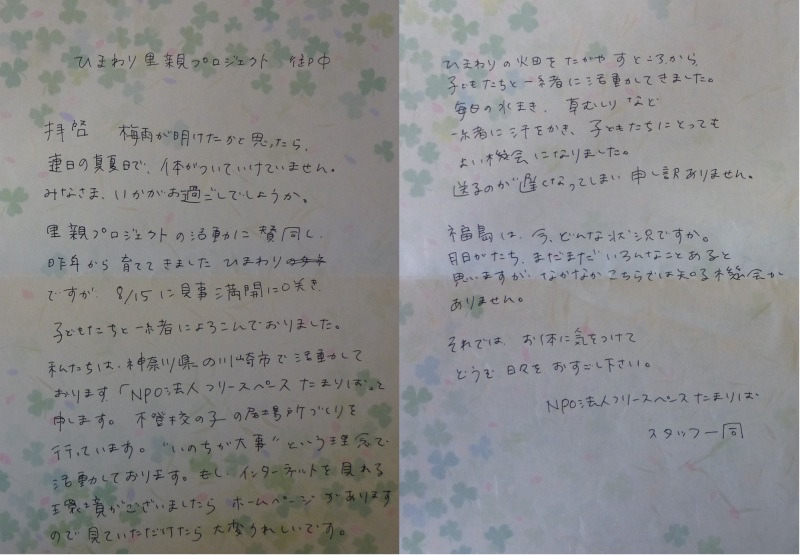 ひまわり里親プロジェクト 御中
拝啓 梅雨が明けたかと思ったら、
連日の真夏日で、体がついていけていません。
みなさま、いかがお過ごしでしょうか。
里親プロジェクトの活動に賛同し、
昨年から育ててきました ひまわり
ですが、8/15に見事満開に咲き
子どもたちと一緒によろこんでおりました。
私たちは、神奈川県の川崎市で活動して
おります「NPO法人フリースペースたまりば」と
申します。不登校の子の居場所づくりを
行っています。"いのちが大事"という理念で
活動しております。もし、インターネットを見れる
環境がございましたら ホームページがあります
ので見ていただけたら大変うれしいです。
ひまわりの畑をたがやすところから、
子どもたちと一緒に活動してきました。
毎日の水まき、草むしりなど
一緒に汗をかき、子どもたちにとっても
よい機会になりました。
送るのが遅くなってしまい申し訳ありません。
福島は、今、どんな状況ですか。
月日がたち、まだまだいろんなことあると
思いますが、なかなかこちらでは知る機会が
ありません。
それでは、お体に気をつけて
どうぞ日々をおすごし下さい。
NPO法人フリースペースたまりば
スタッフ一同